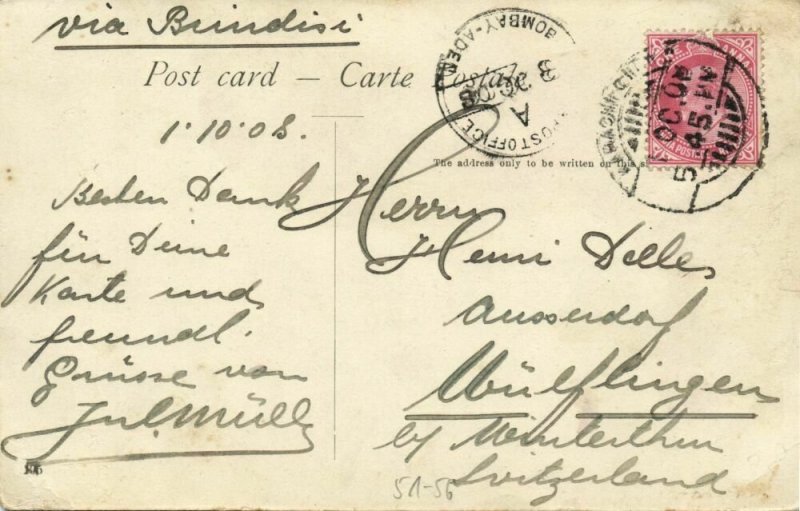 via Brindisi
Post card — Carte Postale
POST OFFICE
BOMBAY-ADEN
A
3 OC 08
INDIA POSTAGE
5 OC. 08
45. PM
The address only to be written on this
1.10.08.
Besten Dank
für Deine
Karte und
freundl.
Grüsse von
Jul Müller
Herrn
Henri Delles
Ausserdorf
Wülflingen
by Winterthur
Switzerland
51-56